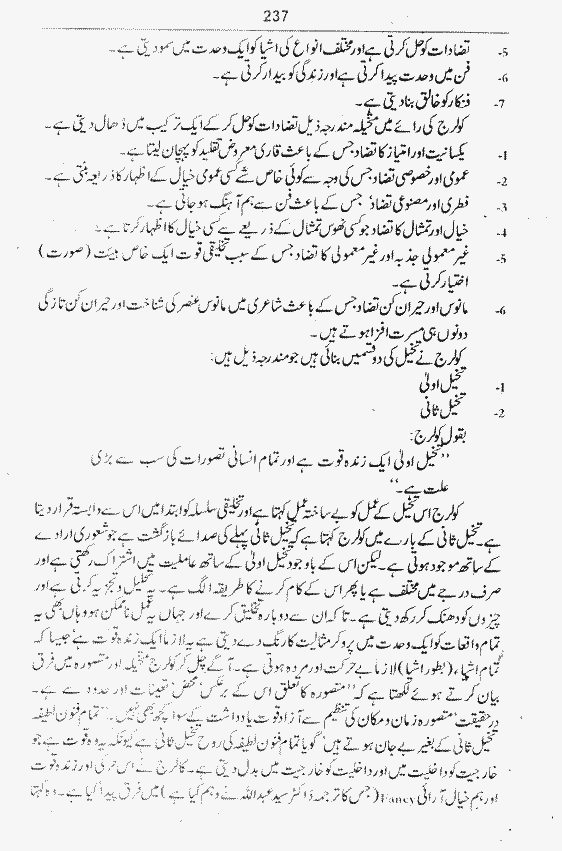 237
5- تضادات کو حل کرتی ہے اور مختلف انواع کی اشیا کو ایک وحدت میں سمو دیتی ہے۔
6- فن میں وحدت پیدا کرتی ہے اور زندگی کو بیدار کرتی ہے۔
7- فنکار کو خالق بنا دیتی ہے۔
کولرج کی رائے میں متخیلہ مندرجہ ذیل تضادات کو حل کر کے ایک ترکیب میں ڈھال دیتی ہے۔
1- یکسانیت اور امتیاز کا تضاد جس کے باعث قاری معروض تقلید کو پہچان لیتا ہے۔
2- عمومی اور خصوصی تضاد جس کی وجہ سے کوئی خاص شے کسی عمومی خیال کے اظہار کا ذریعہ بنتی ہے۔
3- فطری اور مصنوعی تضاد جس کے باعث فن سے ہم آہنگ ہو جاتی ہے۔
4- خیال اور تمثال کا تضاد جو کسی ٹھوس تمثال کے ذریعے سے کسی خیال کا اظہار کرتا ہے۔
5- غیر معمولی جذبہ اور غیر معمولی کا تضاد جس کے سبب تخلیقی قوت ایک خاص ہیئت (صورت)
اختیار کرتی ہے۔
6- مانوس اور حیران کن تضاد جس کے باعث شاعری میں مانوس عنصر کی شناخت اور حیران کن تازگی
دونوں ہی مسرت افزا ہوتے ہیں۔
کولرج نے تخیل کی دو قسمیں بنائی ہیں جو مندرجہ ذیل ہیں:
1- تخیل اولیٰ
2- تخیل ثانی
بقول کولرج:
"تخیل اولیٰ ایک زندہ قوت ہے اور تمام انسانی تصورات کی سب سے بڑی
علت ہے۔"
کولرج اس تخیل کے عمل کو بے ساختہ عمل کہتا ہے اور تخلیقی سلسلہ کو ابتدا میں اس سے وابستہ قرار دیتا
ہے۔ تخیل ثانی کے بارے میں کولرج کہتا ہے کہ تخیل ثانی پہلے کی صدائے بازگشت ہے جو شعوری ارادے
کے ساتھ موجود ہوتی ہے۔ لیکن اس کے باوجود تخیل اولیٰ کے ساتھ عاملیت میں اشتراک رکھتی ہے اور
صرف درجے میں مختلف ہے یا پھر اس کے کام کرنے کا طریقہ الگ ہے۔ یہ تحلیل و تجزیہ کرتی ہے اور
چیزوں کو دھنک کر رکھ دیتی ہے۔ تا کہ ان سے دوبارہ تخلیق کرے اور جہاں یہ عمل ناممکن ہو وہاں بھی یہ
تمام واقعات کو ایک وحدت میں پرو کر مثالیت کا رنگ دے دیتی ہے یہ لازماً ایک زندہ قوت ہے جیسا کہ
تمام اشیاء (بطور اشیا) لازماً بے حرکت اور مردہ ہوتی ہیں۔ آگے چل کر کولرج متخیلہ اور متصورہ میں فرق
بیان کرتے ہوئے لکھتا ہے کہ "متصورہ کا تعلق اس کے برعکس محض تعینات اور حدود سے ہے۔
درحقیقت متصورہ زمان و مکان کی تنظیم سے آزاد قوت یادداشت کے سوا کچھ بھی نہیں۔ "تمام فنون لطیفہ
تخیل ثانی کے بغیر بے جان ہوتے ہیں گویا تمام فنون لطیفہ کی روح تخیل ثانی ہے کیونکہ یہ وہ قوت ہے جو
خارجیت کو داخلیت میں اور داخلیت کو خارجیت میں بدل دیتی ہے۔ کالرج نے اس حرکی اور زندہ قوت
اور ہم خیال آرائی Fancy (جس کا ترجمہ ڈاکٹر سید عبداللہ نے وہم کیا ہے) میں فرق پیدا کیا ہے۔ وہ کہتا